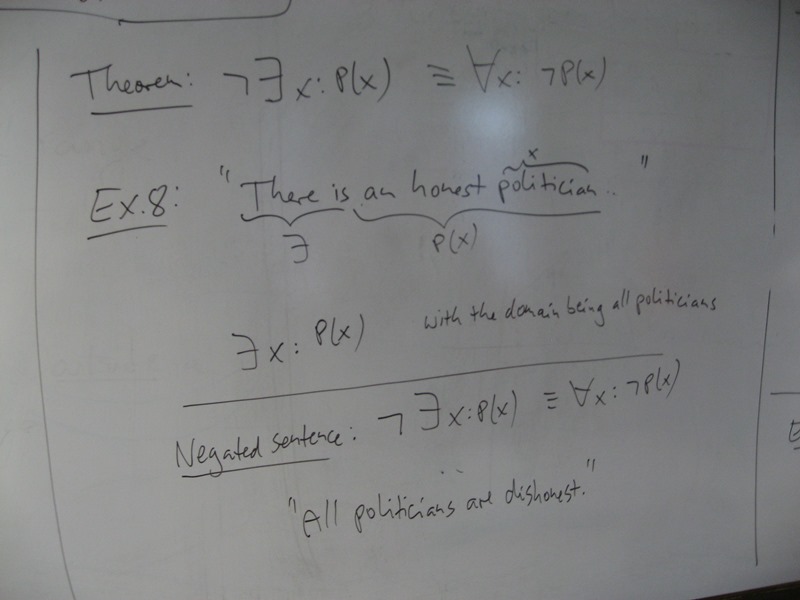 Theorem: ¬∃x: P(x) ≡ ∀x: ¬P(x)
x
Ex.8: "There is an honest politician."
∃ P(x)
∃x: P(x) with the domain being all politicians
Negated sentence: ¬∃x: P(x) ≡ ∀x: ¬P(x)
"All politicians are dishonest."